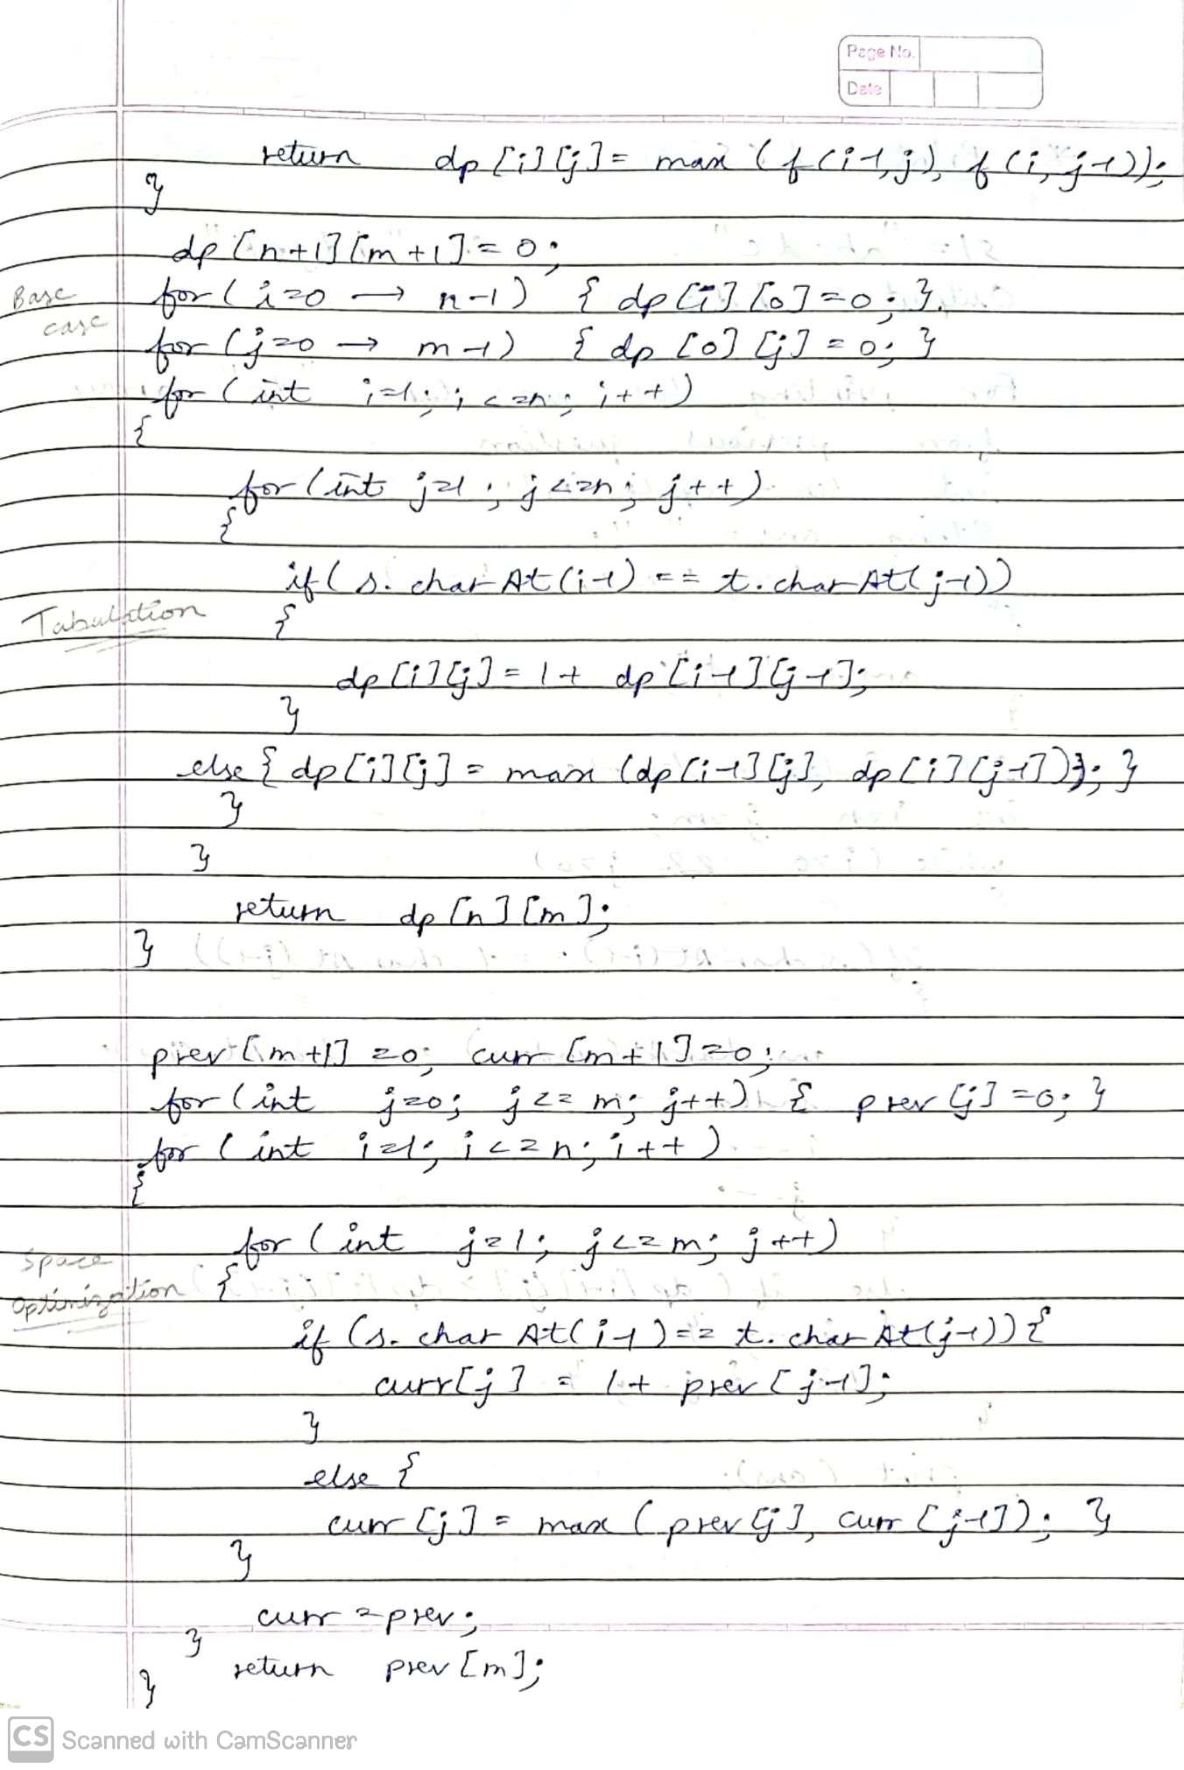 Page No.
Date
return dp[i][j] = max (f(i-1,j), f(i, j-1));
}
dp [n+1][m+1] = 0;
Base case
for (i=0 → n-1) { dp[i][0]=0; }
for (j=0 → m-1) { dp[0][j]=0; }
for (int i=1; i<=n; i++)
{
for (int j=1; j<=n; j++)
{
if (s.charAt(i-1) == t.charAt(j-1))
Tabulation
{
dp[i][j] = 1+ dp[i-1][j-1];
}
else { dp[i][j] = max (dp[i-1][j], dp[i][j-1])}; }
}
}
return dp[n][m];
}
prev [m+1] =0; curr [m+1]=0;
for (int j=0; j<= m; j++) { prev [j] =0; }
for (int i=1; i<=n; i++)
{
for (int j=1; j<=m; j++)
Space Optimization
{
if (s.charAt(i-1)== t.charAt(j-1)) {
curr[j] = 1+ prev [j-1];
}
else {
curr [j] = max (prev[j], curr [j-1]); }
}
curr =prev;
}
return prev [m];
}
CS Scanned with CamScanner